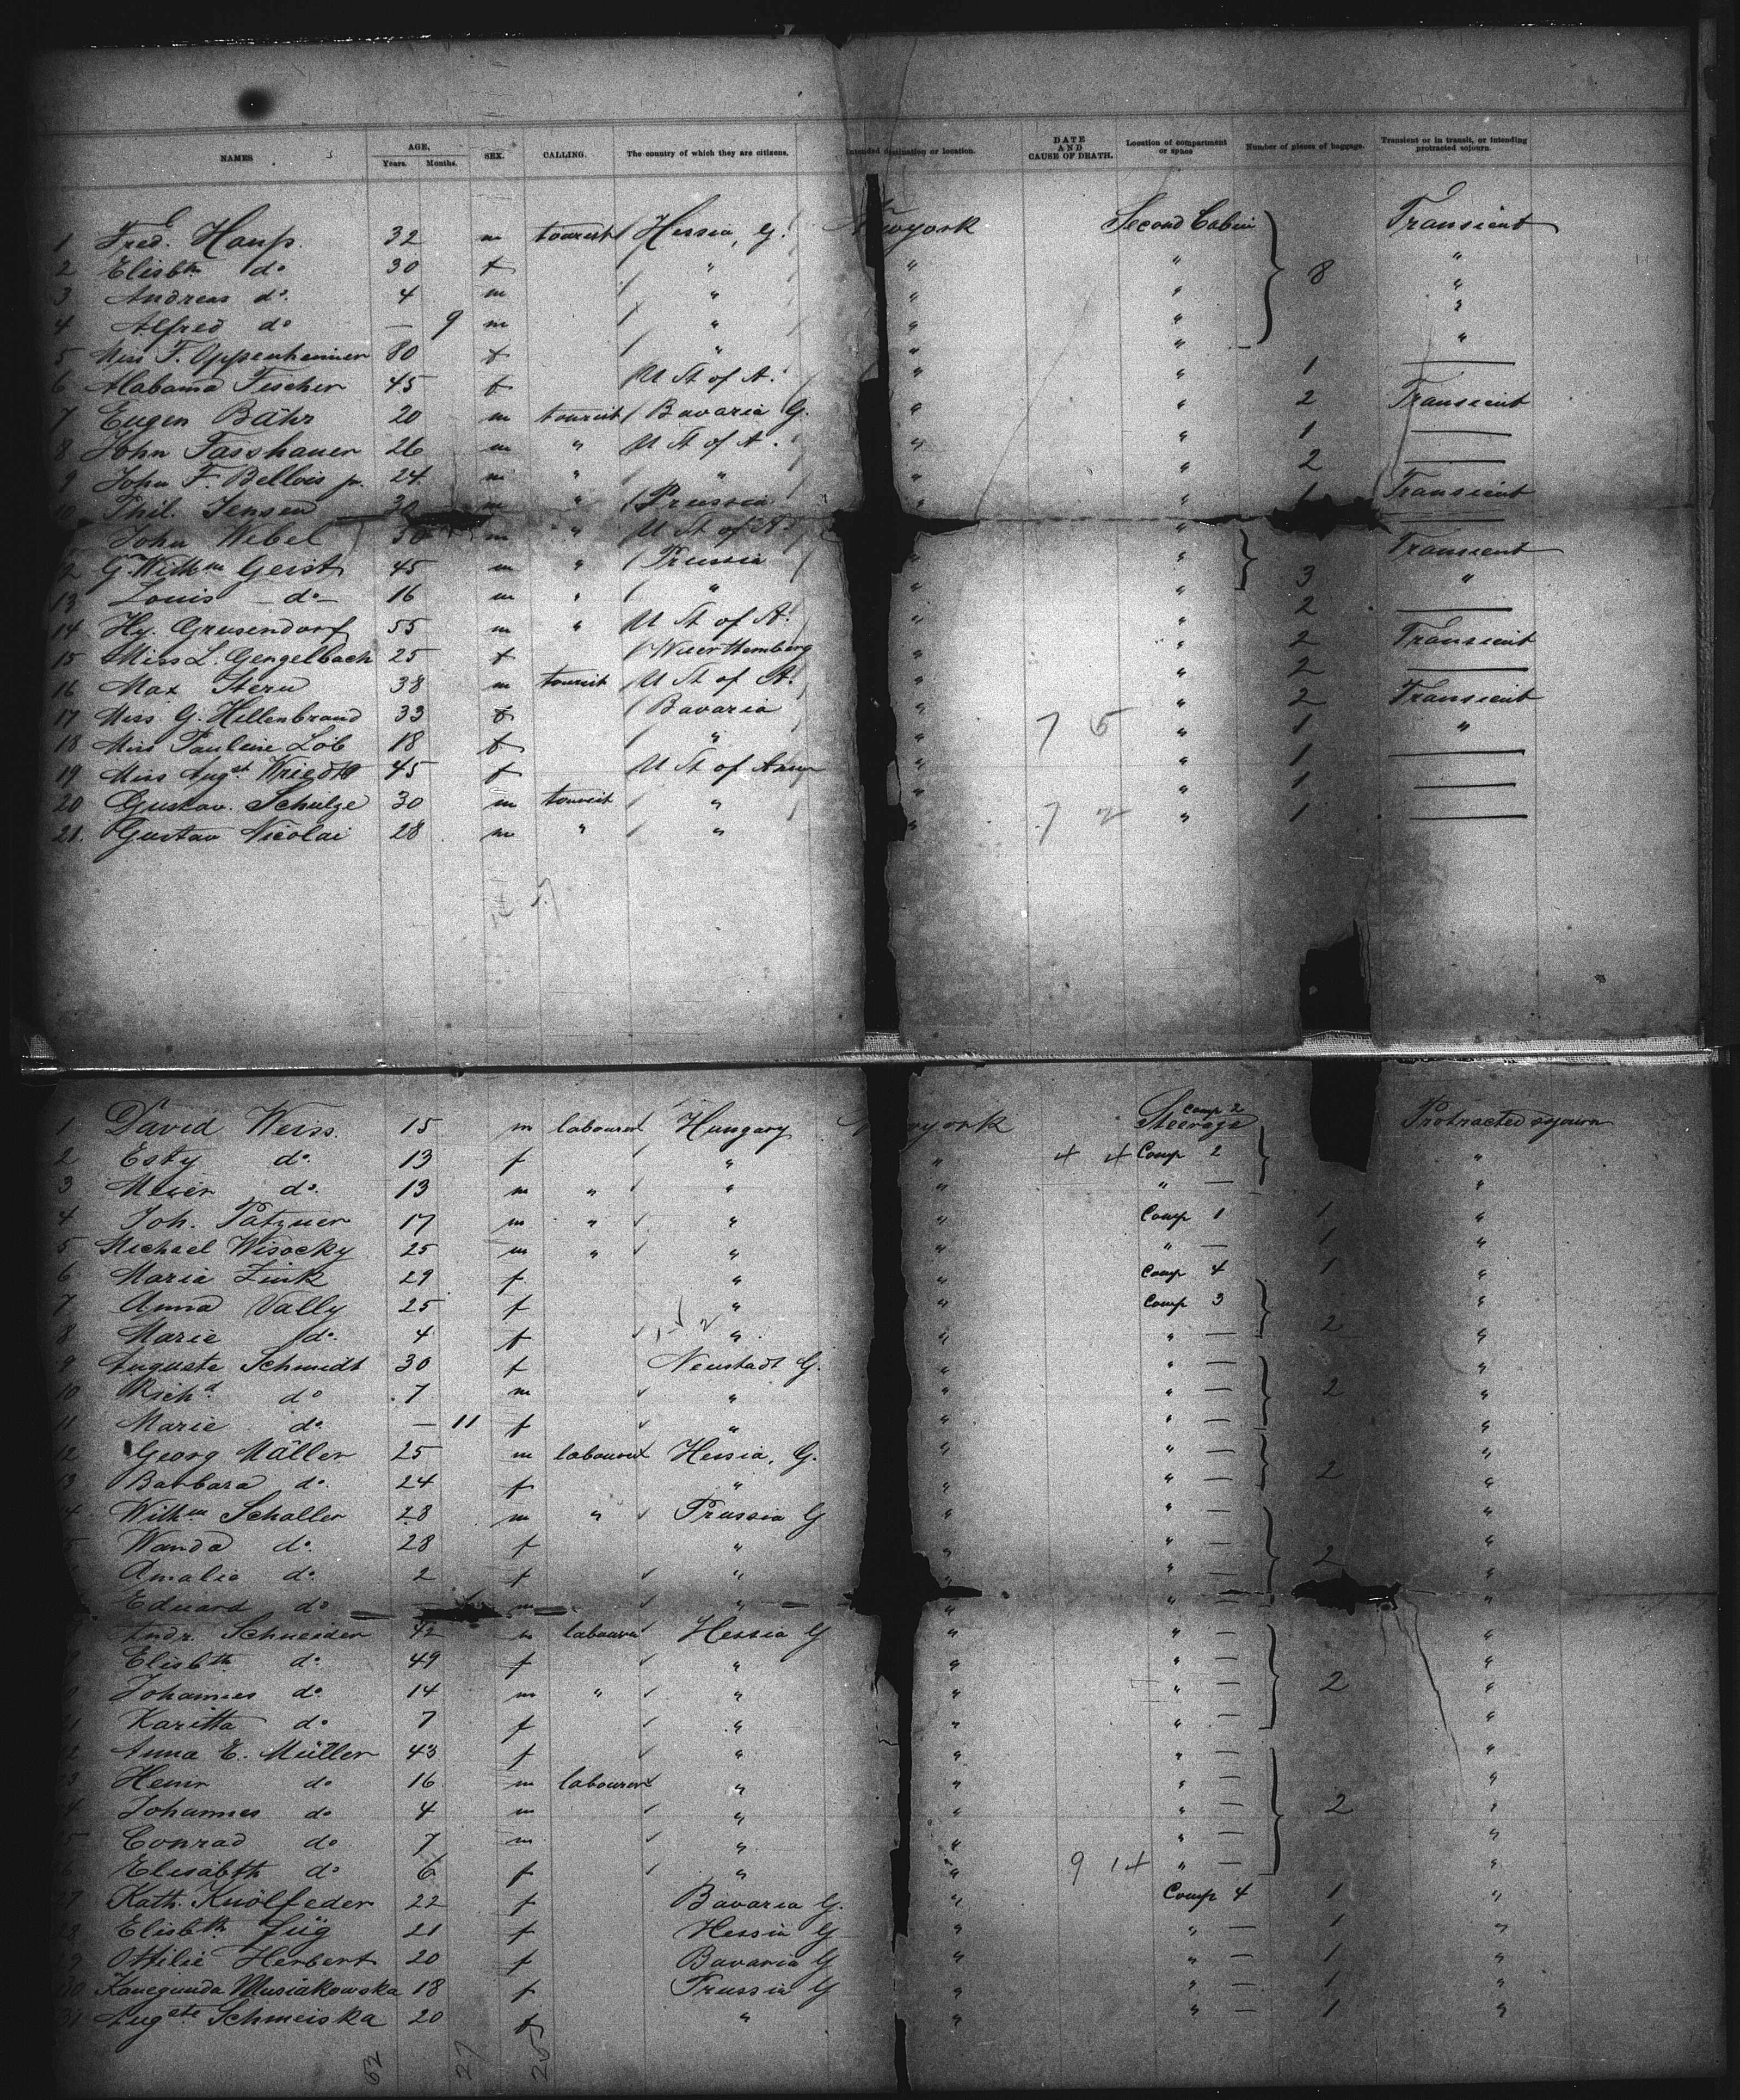 NAMES AGE, Years. Months. SEX. CALLING. The country of which they are citizens. Intended destination or location. DATE AND CAUSE OF DEATH. Location of compartment or space Number of pieces of baggage. Transient or in transit, or intending protracted sojourn.
1 Fred. Haup. 32 m tourist Hessia, G. Newyork Second Cabin 8 Transient
2 Elisbth do 30 f " " " "
3 Andreas do. 4 m " " " "
4 Alfred do — 9 m " " " "
5 Miss F. Oppenheimer 80 f " " " "
6 Alabama Fischer 45 f U St of A. " " 1 —
7 Eugen Bähr 20 m tourist Bavaria G. " " 2 Transient
8 John Fasshauer 26 m " U St of A. " " 1 —
9 John F. Bellois jr. 24 m " " " " 2 —
10 Phil. Jensen 30 m " Prussia " " 1 Transient
John Webel 30 m " U St of A. " —
2 G. Wilhm Geist 45 m " Prussia " " 3 Transient
13 Louis — do — 16 m " " " " "
14 Hy. Grusendorf 55 m " U St of A. " " 2 —
15 Miss L. Gengelbach 25 f Wuerttemberg " " 2 Transient
16 Max Stern 38 m tourist U St of A. " " 2 —
17 Miss G. Hillenbrand 33 f Bavaria " 7 5 " 2 Transient
18 Miss Pauline Löb 18 f " " " 1 "
19 Miss Augst Wriedt 45 f U St of Amer " " 1 —
20 Gustav. Schulze 30 m tourist " " " 1 —
21. Gustav Nicolai 28 m " " " 7 2 " 1 —
1 David Weiss. 15 m labourer Hungary Newyork Steerage Comp 2 Protracted sojourn
2 Esty do. 13 f " " 4 4 Comp 2 "
3 Meier do. 13 m " " " " — "
4 Joh. Patzner 17 m " " " Comp 1 1 "
5 Michael Wisocky 25 m " " " " — 1 "
6 Maria Zink 29 f " " Comp 4 1 "
7 Anna Vally 25 f " " Comp 3 2 "
8 Marie do. 4 f " " " — "
9 Auguste Schmidt 30 f Neustadt G. " " — 2 "
10 Richd do 7 m " " " — "
11 Marie do. — 11 f " " " — "
12 Georg Müller 25 m labourer Hessia, G. " " — 2 "
13 Barbara do. 24 f " " " — "
4 Wilhm Schaller 28 m " Prussia G " " — 2 "
5 Wanda do. 28 f " " " — "
Amalia do. 2 f " " " — "
Eduard do m " " " — "
Andr. Schneider 42 m labourer Hessia G " " — 2 "
Elisbth do. 49 f " " " — "
0 Johannes do. 14 m " " " " — "
21 Karitta do 7 f " " " — "
2 Anna E. Müller 43 f " " " — 2 "
3 Heinr do 16 m labourer " " " — "
4 Johannes do 4 m " " " — "
5 Conrad do 7 m " " " — "
6 Elisabth do 6 f " " 9 14 " — "
27 Kath. Knölfeder 22 f Bavaria G. " Comp 4 1 "
28 Elisbth Füg 21 f Hessia G " " — 1 "
9 Ottilie Herbert 20 f Bavaria G " " — 1 "
30 Kunegunda Musiakowska 18 f Prussia G " " — 1 "
31 Augste Schmeiska 20 f " " " — 1 "
62 27 25